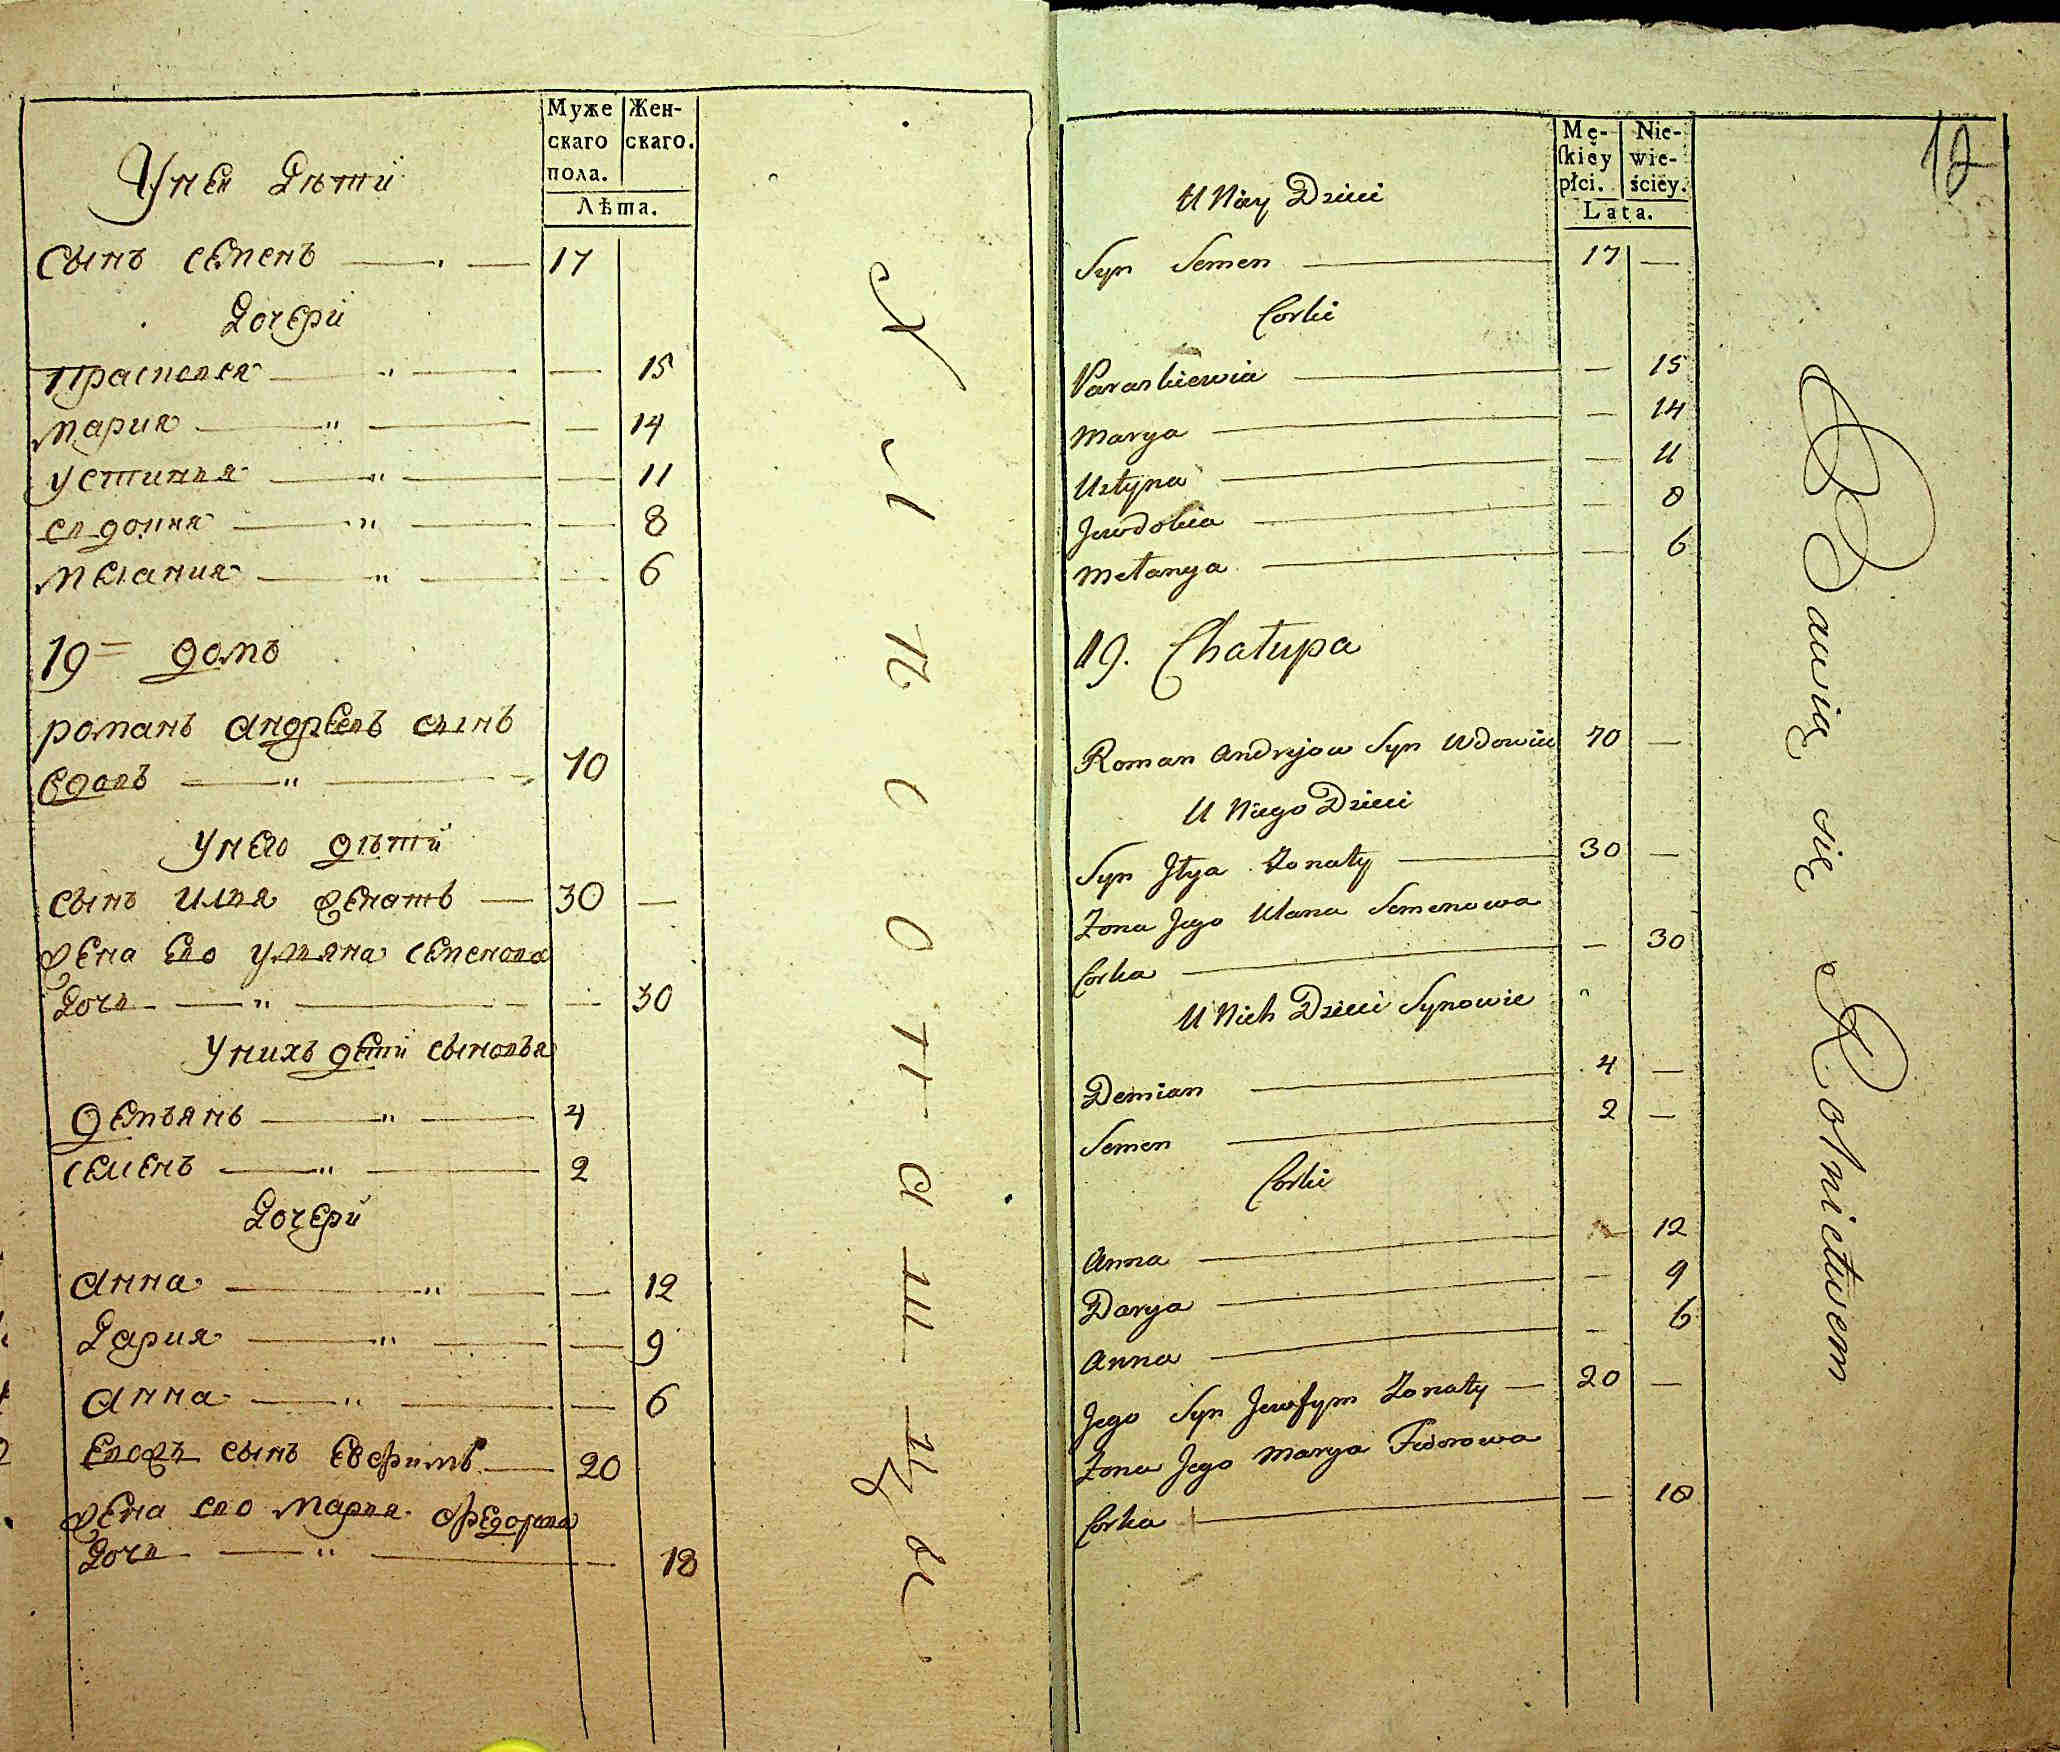 Муже скаго пола.
Жен- скаго.
Лѣта.
У неи Дѣти
Сынъ Семенъ 17
Дочери
Прасковя — 15
Мария — 14
Устиния — 11
Евдокия — 8
Мелания — 6
19 = домъ
Романъ Андреевъ сынъ
вдовъ 70
У него дѣти
Сынъ Илья женатъ 30 —
Жена ево Ульяна Семенова
Дочь — 30
У нихъ дети сыновья
Демьянъ 4
Семенъ 2
Дочери
Анна — 12
Дария — 9
Анна — 6
Евожъ сынъ Евфимъ 20
Жена ево Марья Федорова
Дочь — 18
Mę- skiéy płci.
Nie- wie- ściey.
Lata.
12
U Niey Dzieci
Syn Semen 17 —
Corki
Paraskiewia — 15
Marya — 14
Ustyna — 11
Jewdokia — 8
Mełanya — 6
19. Chałupa
Roman Andryjow Syn Wdowiec 70 —
U Niego Dzieci
Syn Jłya Żonaty 30 —
Żona Jego Ulana Semenowa
Corka — 30
U Nich Dzieci Synowie
Demian 4 —
Semen 2 —
Corki
Anna — 12
Darya — 9
Anna — 6
Jego Syn Jewfym Żonaty 20 —
Żona Jego Marya Fedorowa
Corka — 18
Bawią się Rolnictwem